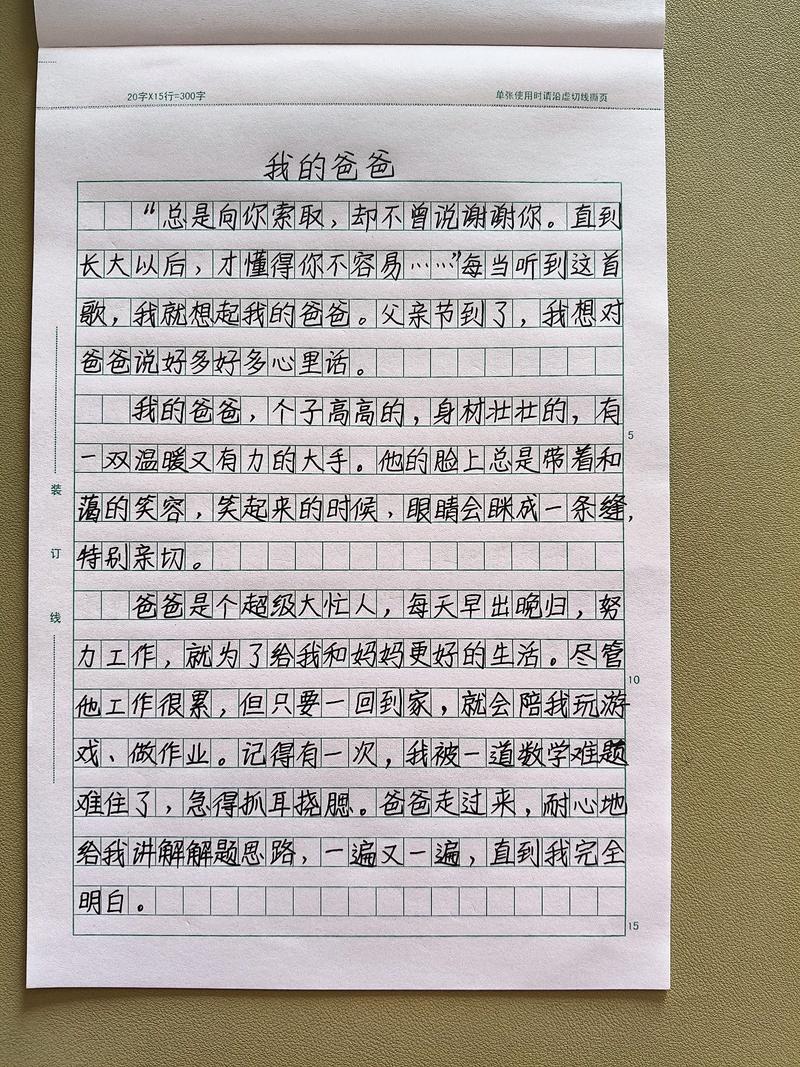 20字X15行=300字
单张使用时请沿虚切线撕页
我的爸爸
“总是向你索取，却不曾说谢谢你。直到
长大以后，才懂得你不容易……”每当听到这首
歌，我就想起我的爸爸。父亲节到了，我想对
爸爸说好多好多心里话。
我的爸爸，个子高高的，身材壮壮的，有
一双温暖又有力的大手。他的脸上总是带着和
蔼的笑容，笑起来的时候，眼睛会眯成一条缝，
特别亲切。
爸爸是个超级大忙人，每天早出晚归，努
力工作，就为了给我和妈妈更好的生活。尽管
他工作很累，但只要一回到家，就会陪我玩游
戏、做作业。记得有一次，我被一道数学难题
难住了，急得抓耳挠腮。爸爸走过来，耐心地
给我讲解解题思路，一遍又一遍，直到我完全
明白。
装
订
线
5
10
15